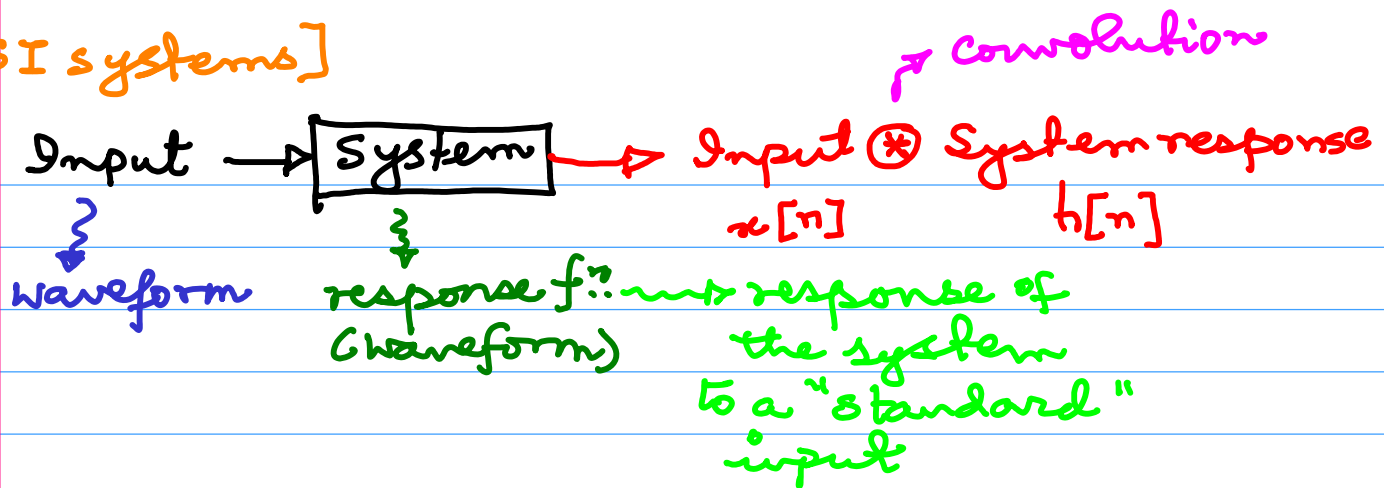 SI systems]
convolution
Input → System → Input ⊛ System response
x[n] h[n]
waveform response fn. → response of
(waveform) the system
to a "standard"
input